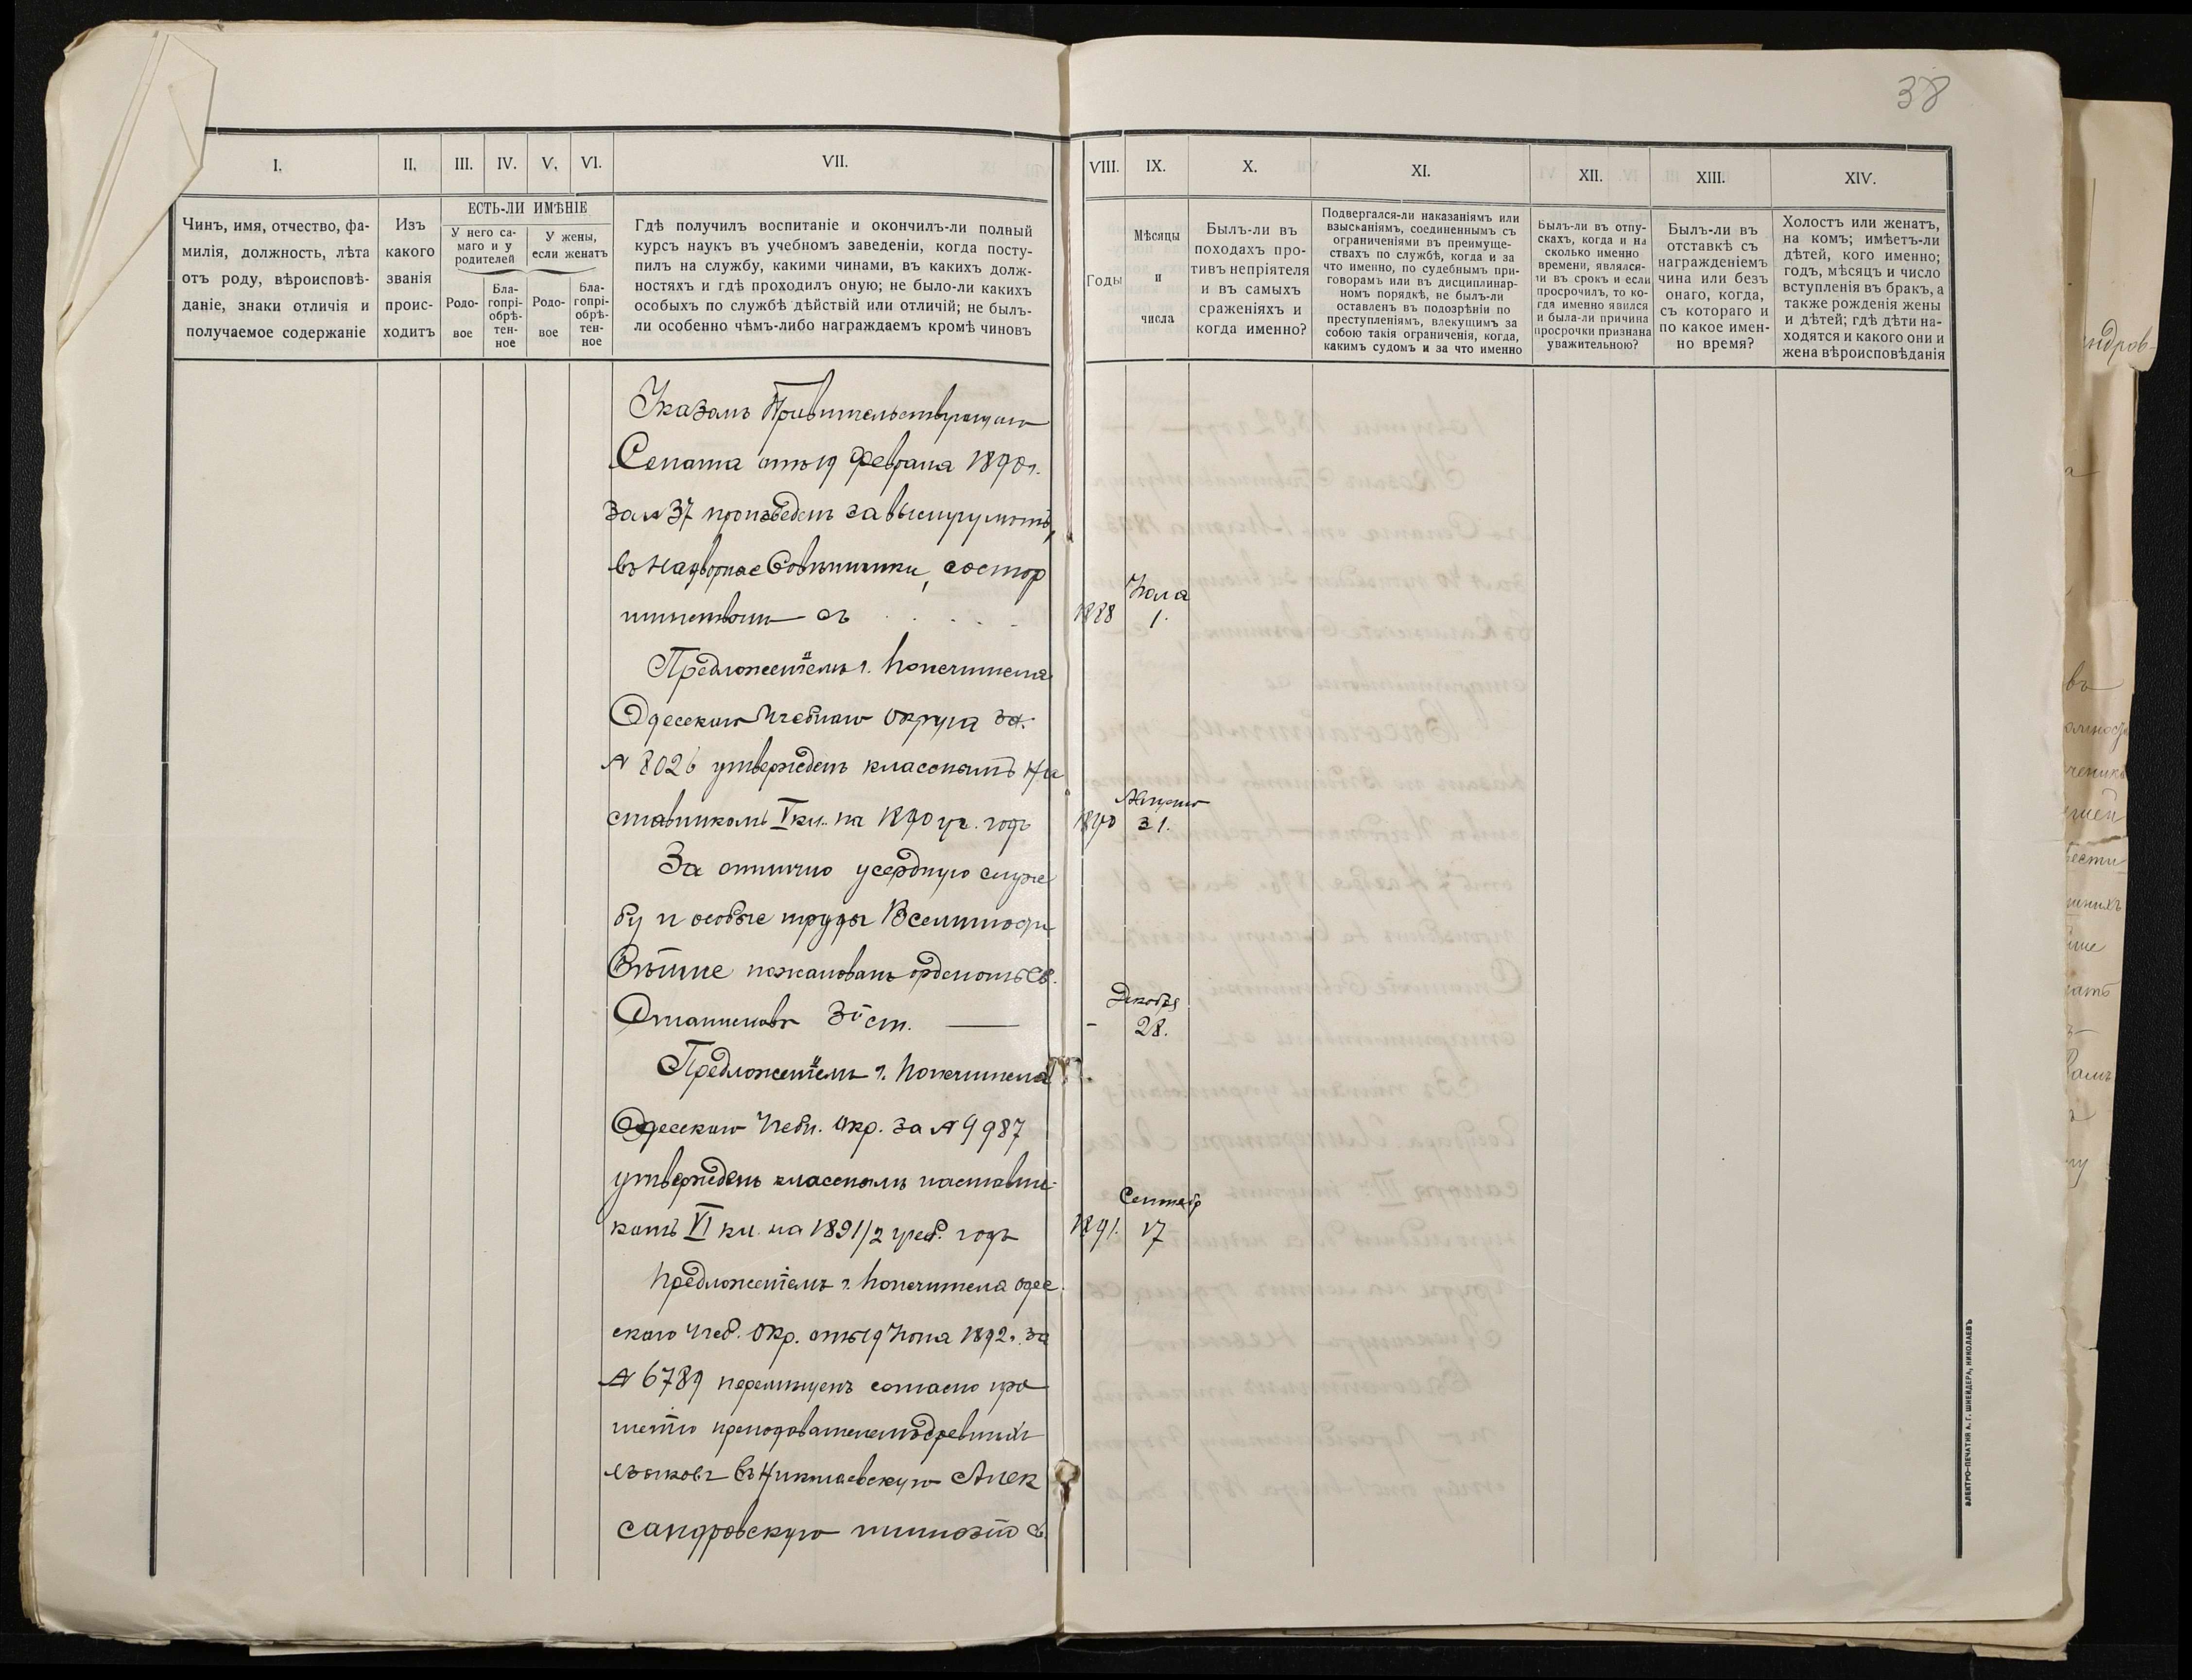 38
I.
II.
III.
IV.
V.
VI.
VII.
VIII.
IX.
X.
XI.
XII.
XIII.
XIV.
Чинъ, имя, отчество, фа-
милія, должность, лѣта
отъ роду, вѣроисповѣ-
даніе, знаки отличія и
получаемое содержаніе
Изъ
какого
званія
проис-
ходитъ
ЕСТЬ-ЛИ ИМѢНІЕ
У него са-
маго и у
родителей
У жены,
если женатъ
Родо-
вое
Бла-
гопрі-
обрѣ-
тен-
ное
Родо-
вое
Бла-
гопрі-
обрѣ-
тен-
ное
Гдѣ получилъ воспитаніе и окончилъ-ли полный
курсъ наукъ въ учебномъ заведеніи, когда посту-
пилъ на службу, какими чинами, въ какихъ долж-
ностяхъ и гдѣ проходилъ оную; не было-ли какихъ
особыхъ по службѣ дѣйствій или отличій; не былъ-
ли особенно чѣмъ-либо награждаемъ кромѣ чиновъ
Годы
Мѣсяцы
и
числа
Былъ-ли въ
походахъ про-
тивъ непріятеля
и въ самыхъ
сраженіяхъ и
когда именно?
Подвергался-ли наказаніямъ или
взысканіямъ, соединеннымъ съ
ограниченіями въ преимуще-
ствахъ по службѣ, когда и за
что именно, по судебнымъ при-
говорамъ или въ дисциплинар-
номъ порядкѣ, не былъ-ли
оставленъ въ подозрѣніи по
преступленіямъ, влекущимъ за
собою такія ограниченія, когда,
какимъ судомъ и за что именно
Былъ-ли въ отпу-
скахъ, когда и на
сколько именно
времени, являлся-
ли въ срокъ и если
просрочилъ, то ко-
гда именно явился
и была-ли причина
просрочки признана
уважительною?
Былъ-ли въ
отставкѣ съ
награжденіемъ
чина или безъ
онаго, когда,
съ котораго и
по какое имен-
но время?
Холостъ или женатъ,
на комъ; имѣетъ-ли
дѣтей, кого именно;
годъ, мѣсяцъ и число
вступленія въ бракъ, а
также рожденія жены
и дѣтей; гдѣ дѣти на-
ходятся и какого они и
жена вѣроисповѣданія
Указомъ Правительствующаго
Сената отъ 19 Февраля 1890 г.
за № 37 произведенъ за выслугу лѣтъ,
въ Надворные Совѣтники, состар
шинствомъ съ . . . .
1888
Іюля
1.
Предложеніемъ г. Попечителя
Одесскаго Учебнаго Округа за
№ 8026 утвержденъ класснымъ На
ставникомъ V кл. на 1890 уч. годъ
1890
Августа
31.
За отлично усердную служ
бу и особые труды Всемилости
вѣйше пожалованъ орденомъ Св.
Станислава 3й ст. —
-
Декабря
28.
Предложеніемъ г. Попечителя
Одесскаго Учебн. Окр. за № 9987
утвержденъ класснымъ наставни-
комъ VI кл. на 1891/2 учеб. годъ
1891.
Сентябр
17
Предложеніемъ г. Попечителя Одес
скаго Учеб. Окр. отъ 19 Іюня 1892 г. за
№ 6789 перемѣщенъ согласно про
шенію преподавателемъ древнихъ
языковъ въ Николаевскую Алек
сандровскую гимназію съ
ЭЛЕКТРО-ПЕЧАТНЯ А. Г. ШНЕЙДЕРА, НИКОЛАЕВЪ